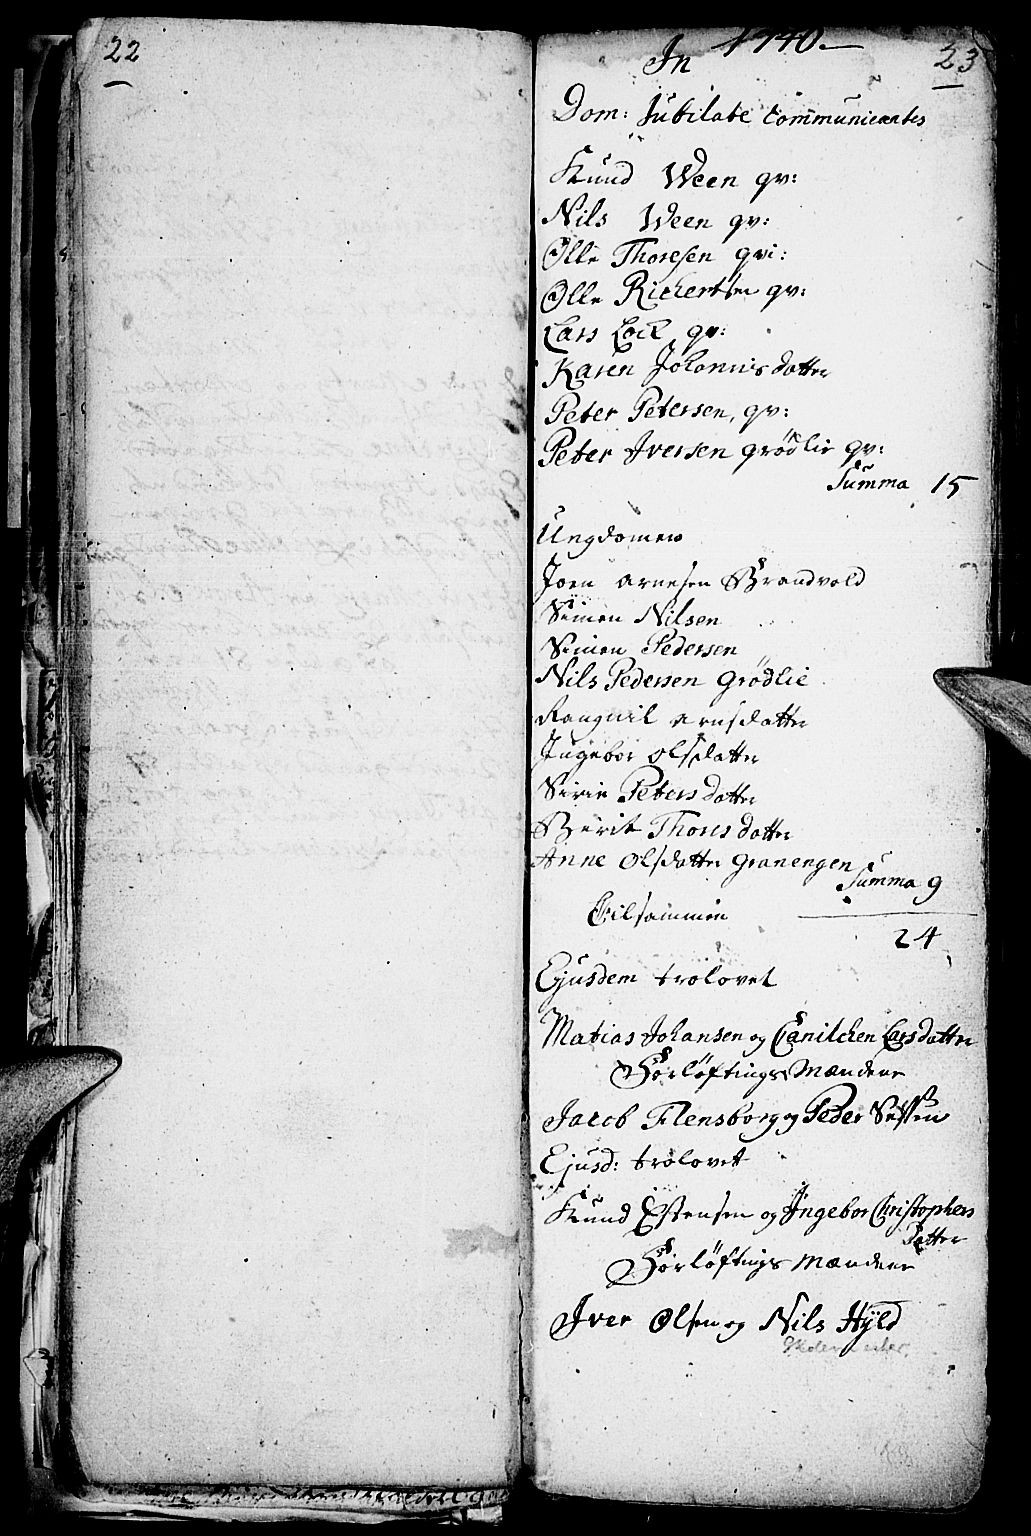 22
1740.
23
In
Dom: Jubilate Communicantes
Knud Ween qv:
Nils Ween qv:
Olle Thoresen qvi:
Olle Rickertsen qv:
Lars Lock qv:
Karen Johannisdatter
Peter Petersen, qv:
Peter Iversen Grödlie qv:
Summa 15
Ungdomen
Joen Arnesen Brandvold
Simen Nilsen
Simen Pedersen
Nils Pedersen Grödlie
Rangnil Arnsdatter
Ingebor Olsdatter
Sirie Petersdatter
Berit Thoresdatter
Anne Olsdatter Granengen
Summa 9
Tilsammen
24
Ejusdem trolovet
Matias Johansen og Canilchen Larsdatter
Forlöftings Mændene
Jacob Flensborg og Peder
Ejusd: trolovet
Knud Estensen og Ingebor Christophers
Datter
Forlöftings Mændene
Iver Olsen og Nils Hyld